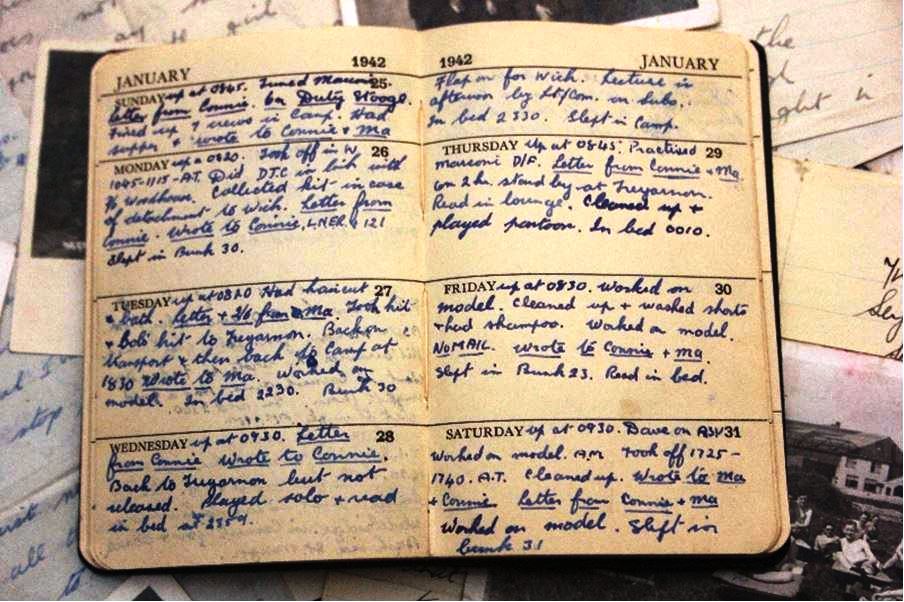 JANUARY 1942
25
SUNDAY up at 0845. Tuned Marconi
letter from Connie. On Duty Stooge.
Fired up 9 crews in Camp. Had
supper & wrote to Connie & Ma
MONDAY up a 0820. Took off in W, 26
1045-1115-A.T. Did D.T.C in link with
Woodhouse. Collected kit in case
of detachment to Wick. Letter from
Connie. Wrote to Connie, LNER & 121
Slept in Bunk 30.
TUESDAY up at 0820 Had haircut 27
& bath. letter + 2/6 from Ma. Took kit
& Bob's kit to Tregarnon. Back on
transport & then back to Camp at
1830 Wrote to Ma. Worked on
model. In bed 2230. Bunk 30
WEDNESDAY up at 0930. Letter 28
from Connie Wrote to Connie.
Back to Tregarnon but not
released. Played solo & read
in bed at 2359.
1942 JANUARY
Flap on for Wick. Lecture in
afternoon by Lt/Com. on Subs.
In bed 2330. Slept in Camp.
THURSDAY Up at 0845. Practised 29
Marconi D/F. Letter from Connie & Ma
on 2 hr. stand by at Tregarnon.
Read in lounge. Cleaned up &
played pontoon. In bed 0010.
FRIDAY up at 0830. Worked on 30
model. Cleaned up & washed shorts
& had shampoo. Worked on model.
NO MAIL. Wrote to Connie & Ma.
Slept in Bunk 23. Read in bed.
SATURDAY up at 0930. Dave on ASV 31
Worked on model. A.M. Took off 1725-
1740. A.T. Cleaned up. Wrote to Ma
& Connie Letter from Connie & Ma
Worked on model. Slept in
bunk 31
the
ght in